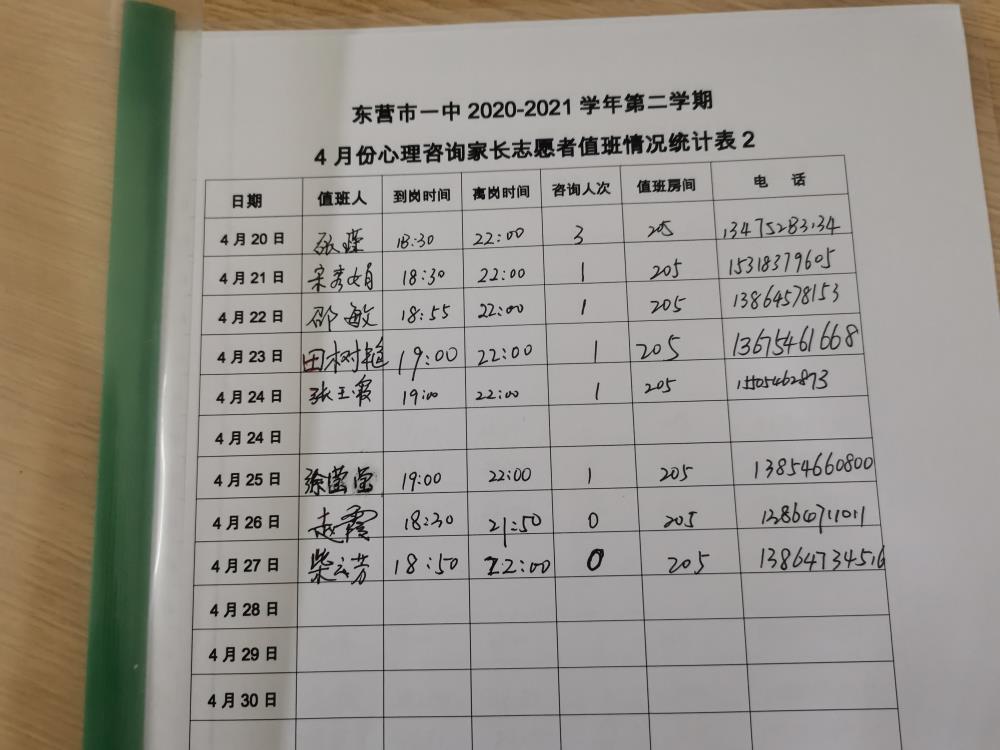 东营市一中 2020-2021 学年第二学期
4 月份心理咨询家长志愿者值班情况统计表 2
日期 值班人 到岗时间 离岗时间 咨询人次 值班房间 电 话
4 月 20 日 18:30 22:00 3 205 13475283134
4 月 21 日 宋彦娟 18:30 22:00 1 205 15318379605
4 月 22 日 邵敏 18:55 22:00 1 205 13864578153
4 月 23 日 田树艳 19:00 22:00 1 205 13675461668
4 月 24 日 张玉霞 19:00 22:00 1 205 15505462873
4 月 24 日
4 月 25 日 徐莹莹 19:00 22:00 1 205 13854660800
4 月 26 日 赵霞 18:30 21:50 0 205
4 月 27 日 柴云芳 18:50 22:00 0 205 13864734516
4 月 28 日
4 月 29 日
4 月 30 日